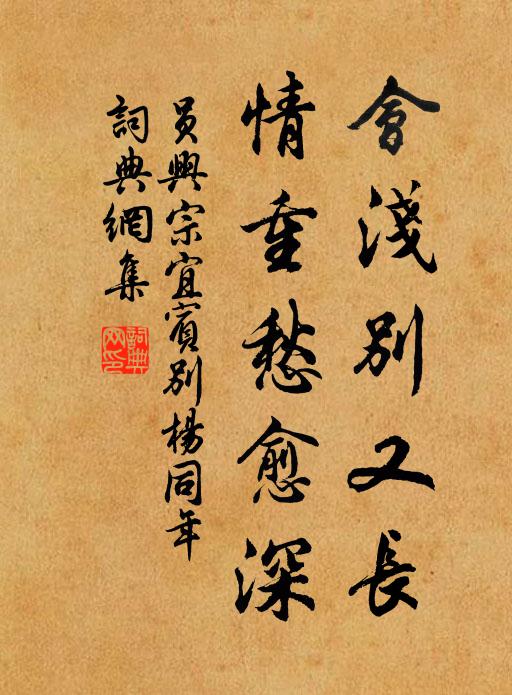 會淺別又長
情重愁愈深
員興宗宜賓別楊同年
詞典網集
詞典網印